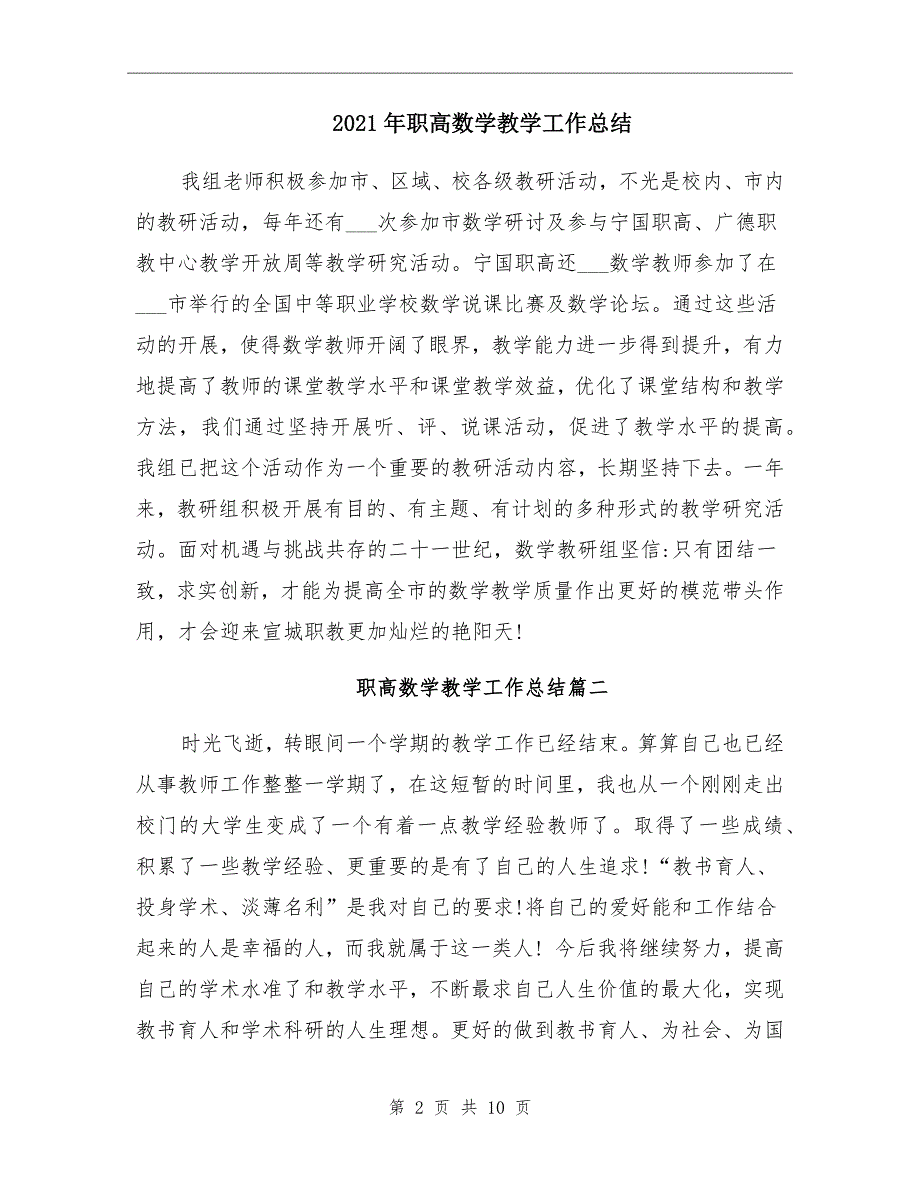 2021年职高数学教学工作总结
我组老师积极参加市、区域、校各级教研活动，不光是校内、市内
的教研活动，每年还有___次参加市数学研讨及参与宁国职高、广德职
教中心教学开放周等教学研究活动。宁国职高还___数学教师参加了在
___市举行的全国中等职业学校数学说课比赛及数学论坛。通过这些活
动的开展，使得数学教师开阔了眼界，教学能力进一步得到提升，有力
地提高了教师的课堂教学水平和课堂教学效益，优化了课堂结构和教学
方法，我们通过坚持开展听、评、说课活动，促进了教学水平的提高。
我组已把这个活动作为一个重要的教研活动内容，长期坚持下去。一年
来，教研组积极开展有目的、有主题、有计划的多种形式的教学研究活
动。面对机遇与挑战共存的二十一世纪，数学教研组坚信:只有团结一
致，求实创新，才能为提高全市的数学教学质量作出更好的模范带头作
用，才会迎来宣城职教更加灿烂的艳阳天!
职高数学教学工作总结篇二
时光飞逝，转眼间一个学期的教学工作已经结束。算算自己也已经
从事教师工作整整一学期了，在这短暂的时间里，我也从一个刚刚走出
校门的大学生变成了一个有着一点教学经验教师了。取得了一些成绩、
积累了一些教学经验、更重要的是有了自己的人生追求!“教书育人、
投身学术、淡薄名利”是我对自己的要求!将自己的爱好能和工作结合
起来的人是幸福的人，而我就属于这一类人! 今后我将继续努力，提高
自己的学术水准了和教学水平，不断最求自己人生价值的最大化，实现
教书育人和学术科研的人生理想。更好的做到教书育人、为社会、为国
第 2 页 共 10 页